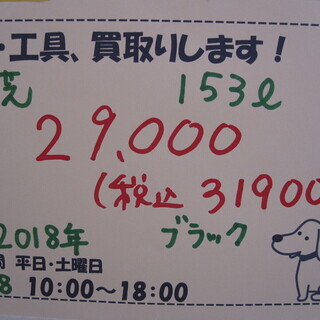 ・工具、買取りします!
153ℓ
29,000
(税込 31900
2018年 ブラック
間 平日・土曜日
8 10:00〜18:00